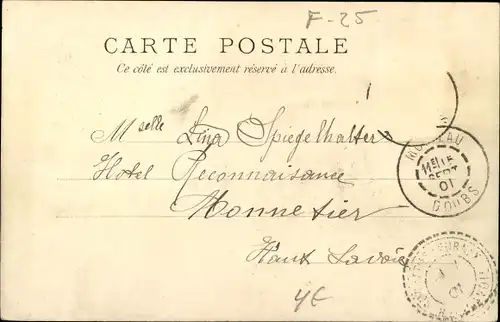 F-25
CARTE POSTALE
Ce côté est exclusivement réservé à l'adresse.
Mselle Lina Spiegelhalter
Hotel Reconnaissance
Monnetier
Haute Savoie
4E
SEPT
01
DOUBS